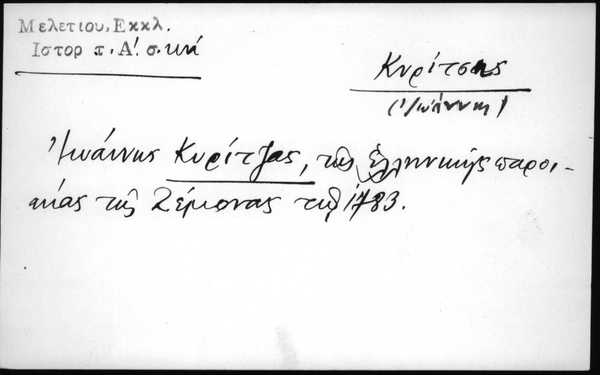 Μελετίου, Εκκλ.
Ιστορ τ. Α'. σ. κηί
Κυρίτσης
(Ἰωάννης)
Ἰωάννης Κυρίτζας, τῆς ἑλληνικῆς παροι-
κίας τῆς Ζέμονας τῷ 1783.